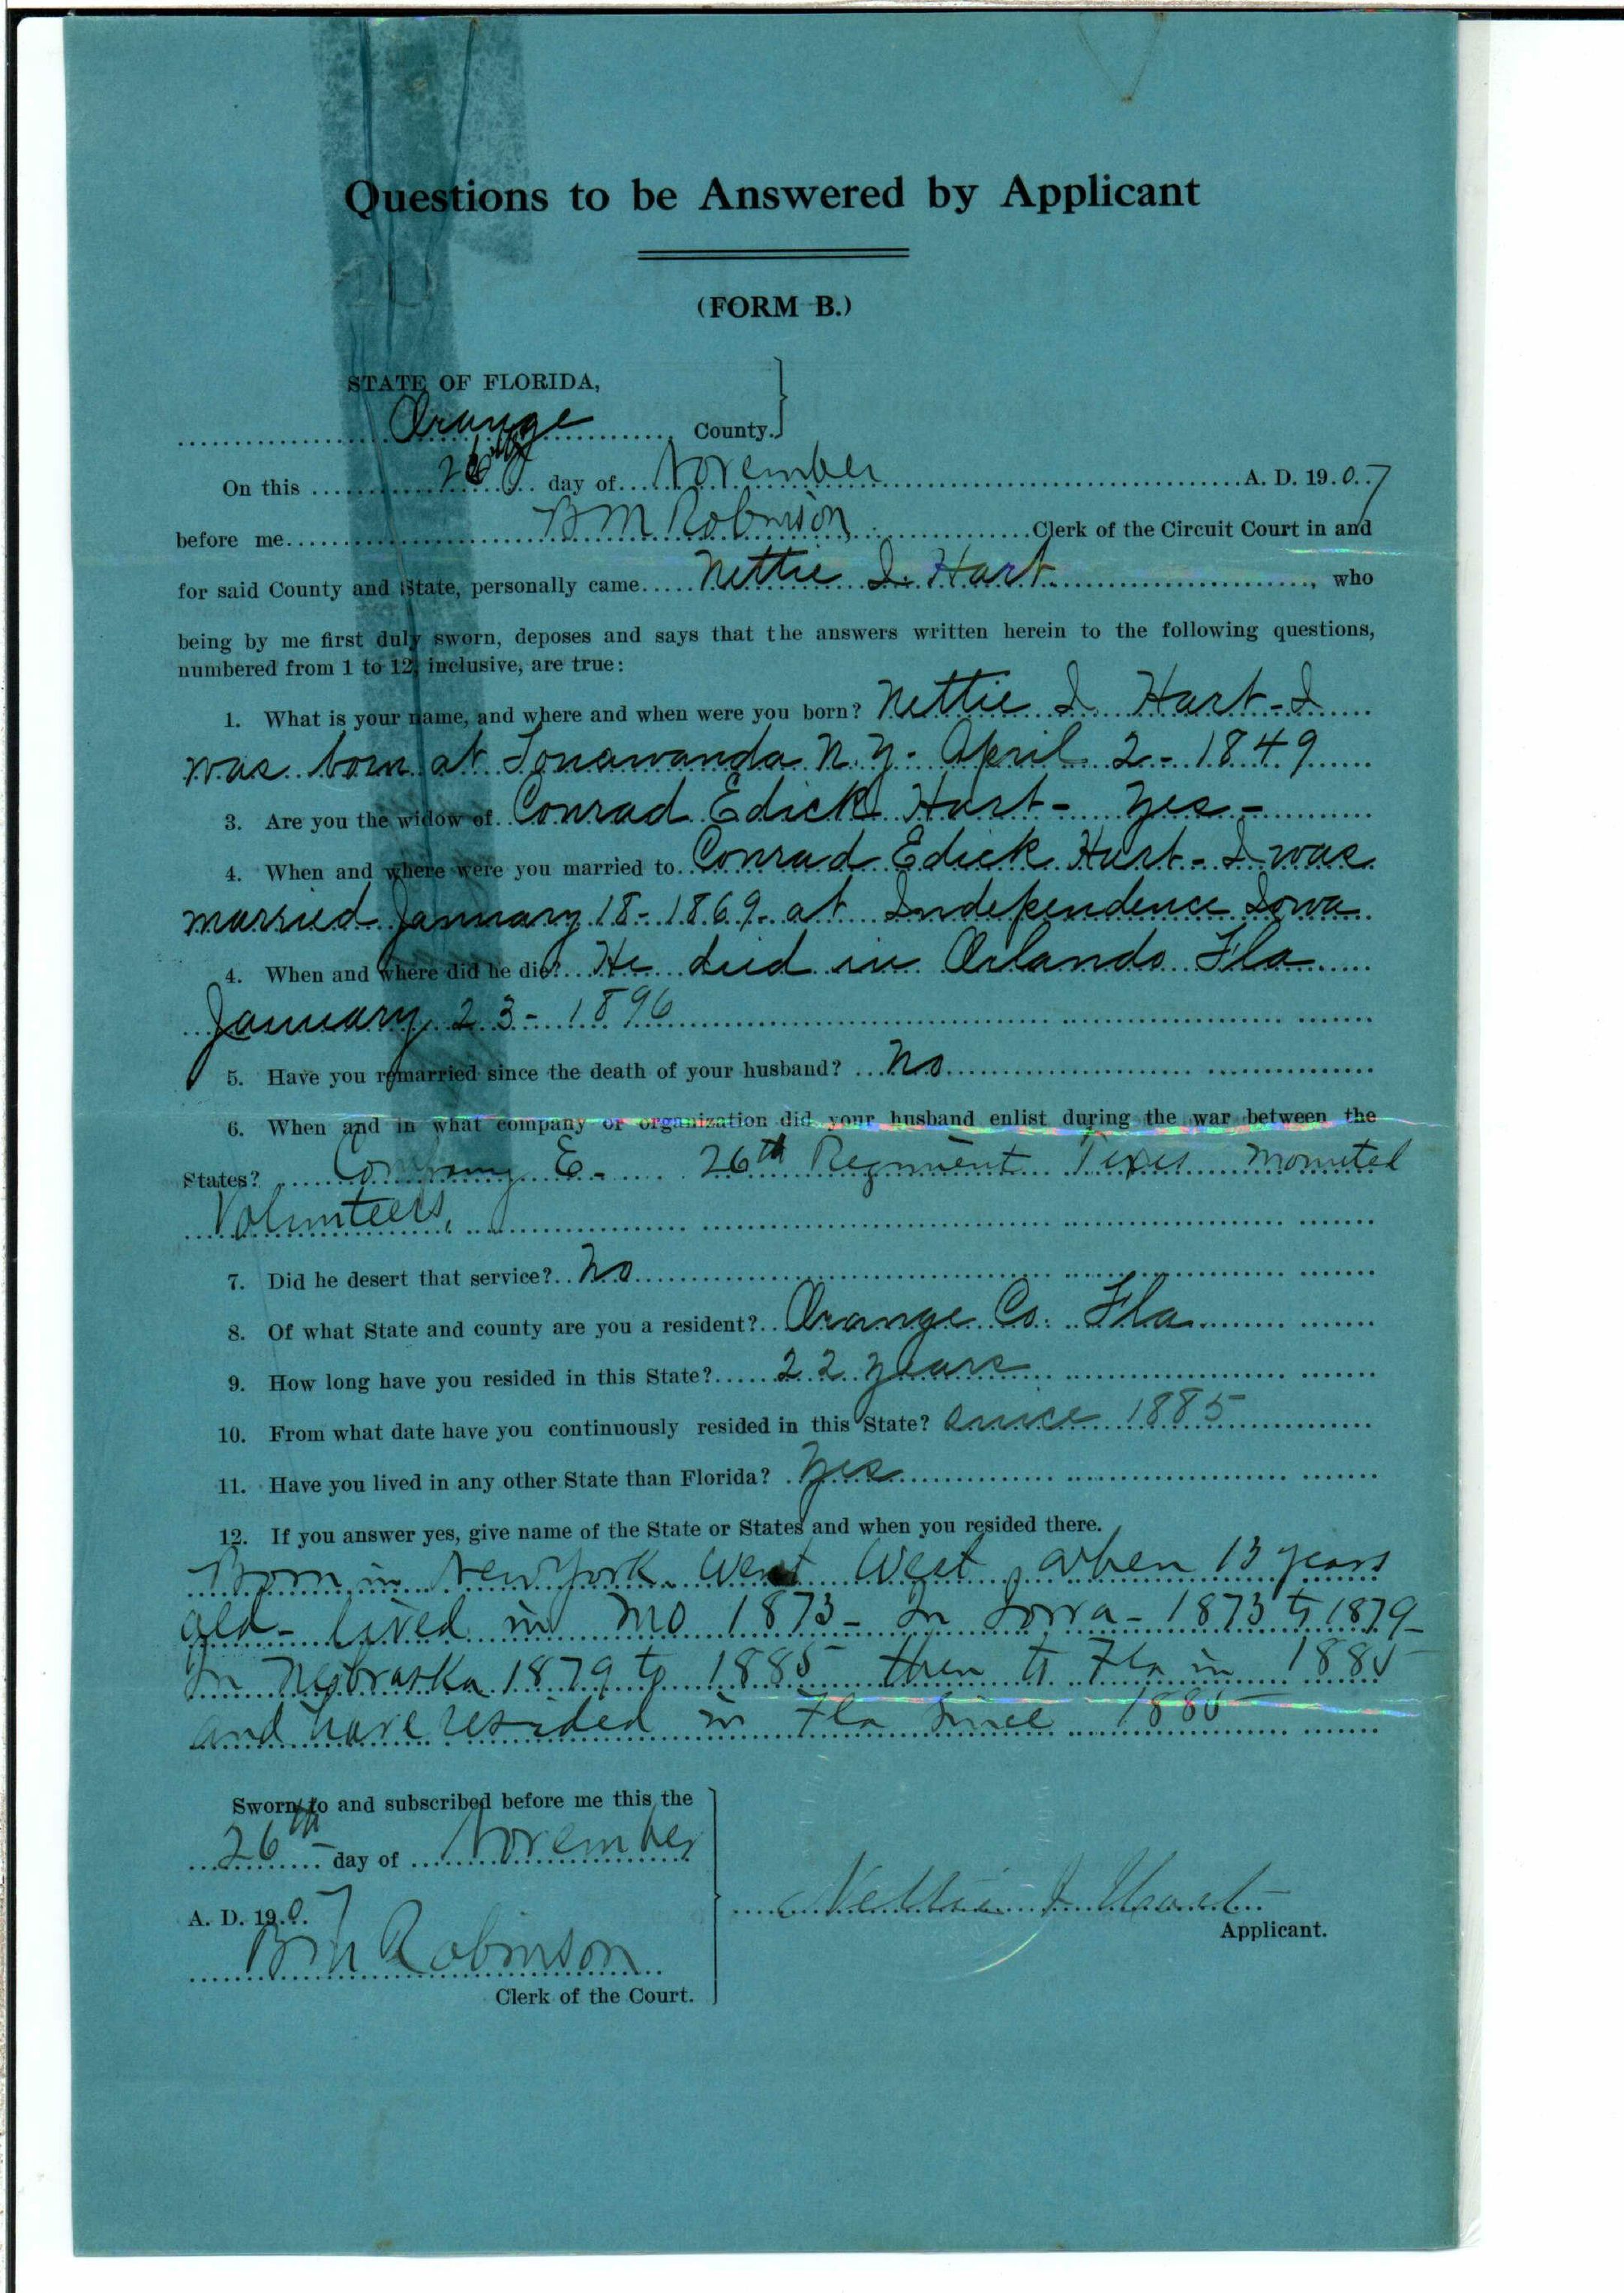 Questions to be Answered by Applicant
(FORM B.)
STATE OF FLORIDA,
Orange County.
On this 26th day of November A. D. 1907
before me B M Robinson Clerk of the Circuit Court in and
for said County and State, personally came Nettie I. Hart, who
being by me first duly sworn, deposes and says that the answers written herein to the following questions,
numbered from 1 to 12, inclusive, are true:
1. What is your name, and where and when were you born? Nettie I. Hart - I
was born at Tonawanda N. Y - April 2 - 1849
3. Are you the widow of Conrad Edick Hart - yes -
4. When and where were you married to Conrad Edick Hart - I was
married January 18 - 1869 - at Independence Iowa
4. When and where did he die? He died in Orlando Fla
January 23 - 1896
5. Have you remarried since the death of your husband? No
6. When and in what company or organization did your husband enlist during the war between the
States? Company E - 26th Regiment Texas Mounted
Volunteers,
7. Did he desert that service? No
8. Of what State and county are you a resident? Orange Co. Fla
9. How long have you resided in this State? 22 years
10. From what date have you continuously resided in this State? Since 1885
11. Have you lived in any other State than Florida? Yes
12. If you answer yes, give name of the State or States and when you resided there.
Born in New York Went West when 13 years
old - lived in Mo 1873 - In Iowa - 1873 to 1879 -
In Nebraska 1879 to 1885 then to Fla in 1885
and have resided in Fla since 1885
Sworn to and subscribed before me this the
26th day of November
A. D. 1907
B M Robinson
Clerk of the Court.
Nettie I Hart
Applicant.